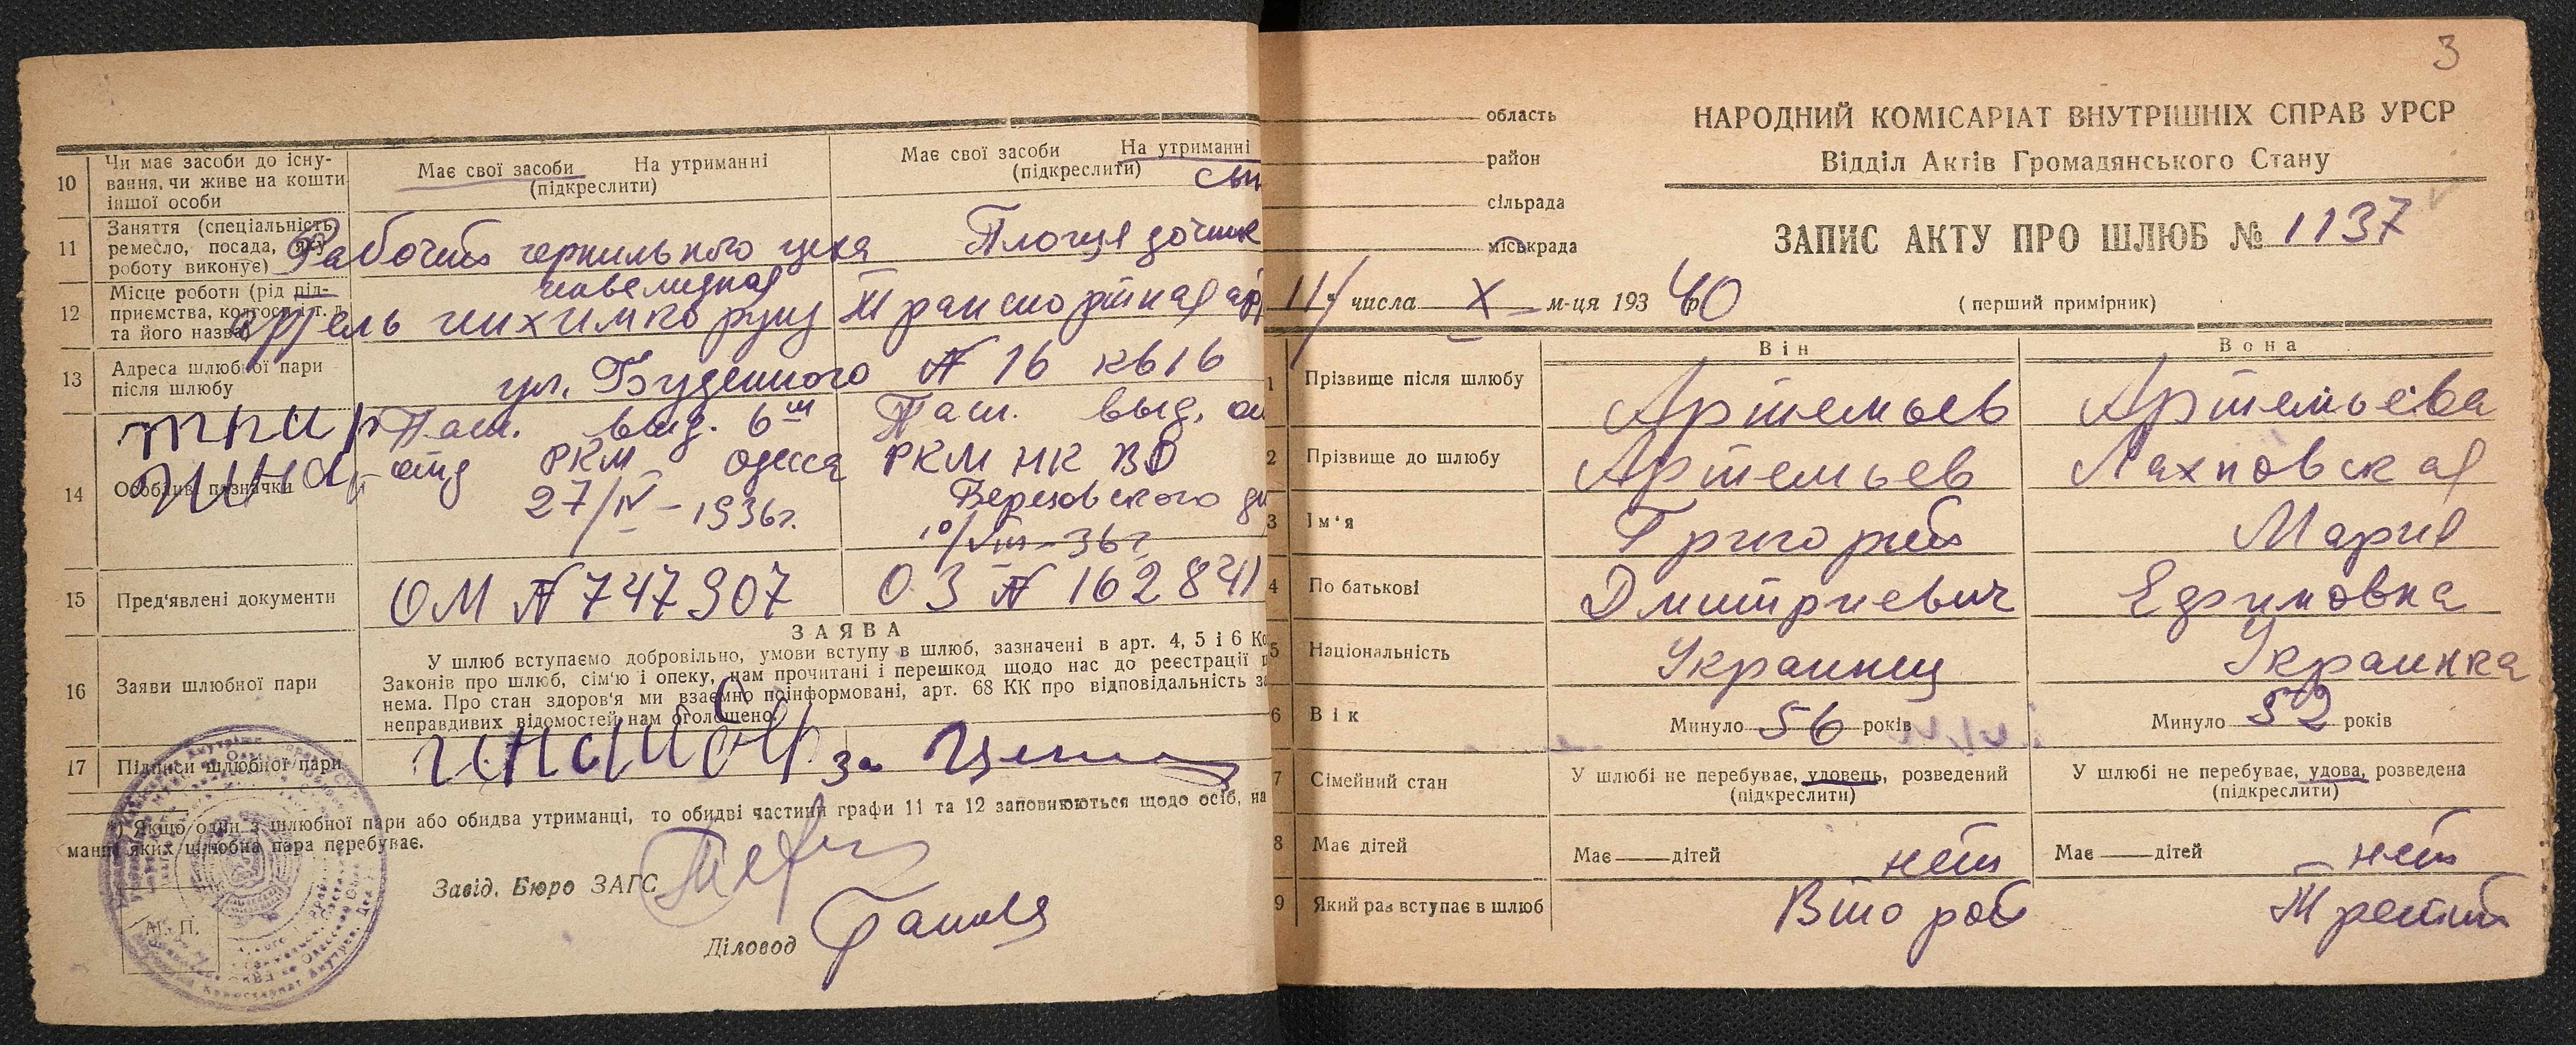 10 Чи має засоби до існу-
вання, чи живе на кошти
іншої особи
Має свої засоби На утриманні
(підкреслити)
Має свої засоби На утриманні
(підкреслити)
11 Заняття (спеціальність,
ремесло, посада, яку
роботу виконує)
Рабочий чернильного цеха
12 Місце роботи (рід під-
приємства, колгосп і т.
та його назва)
артель
Транспортная ар
13 Адреса шлюбної пари
після шлюбу
ул. Буденного № 16 кв 16
14 Особливі позначки
Пасп. выд. 6
отд РКМ Одесса
27/IV - 1936г.
Пасп. выд.
РКМ НКВД
Березовского
10/VIII - 36г.
15 Пред'явлені документи
ОМ № 747907
ОЗ № 162841
16 Заяви шлюбної пари
ЗАЯВА
У шлюб вступаємо добровільно, умови вступу в шлюб, зазначені в арт. 4, 5 і 6 Ко
Законів про шлюб, сім'ю і опеку, нам прочитані і перешкод щодо нас до реєстрації
нема. Про стан здоров'я ми взаємно поінформовані, арт. 68 КК про відповідальність за
неправдивих відомостей нам оголошено.
17 Підписи шлюбної пари
за
*) Якщо один з шлюбної пари або обидва утриманці, то обидві частини графи 11 та 12 заповнюються щодо осіб, на
манні яких шлюбна пара перебуває.
Завід. Бюро ЗАГС
Діловод
М. П.
3
область
район
сільрада
міськрада
НАРОДНИЙ КОМІСАРІАТ ВНУТРІШНІХ СПРАВ УРСР
Відділ Актів Громадянського Стану
ЗАПИС АКТУ ПРО ШЛЮБ № 1137
11 числа X м-ця 193 40 р.
(перший примірник)
Він Вона
1 Прізвище після шлюбу Артемьев Артемьева
2 Прізвище до шлюбу Артемьев Ляхновская
3 Ім'я Григорий Мария
4 По батькові Дмитриевич Ефимовна
5 Національність Украинец Украинка
6 Вік Минуло 56 років Минуло 52 років
7 Сімейний стан У шлюбі не перебуває, удовець, розведений У шлюбі не перебуває, удова, розведена
(підкреслити) (підкреслити)
8 Має дітей Має дітей нет Має дітей нет
9 Який раз вступає в шлюб Второй Третий